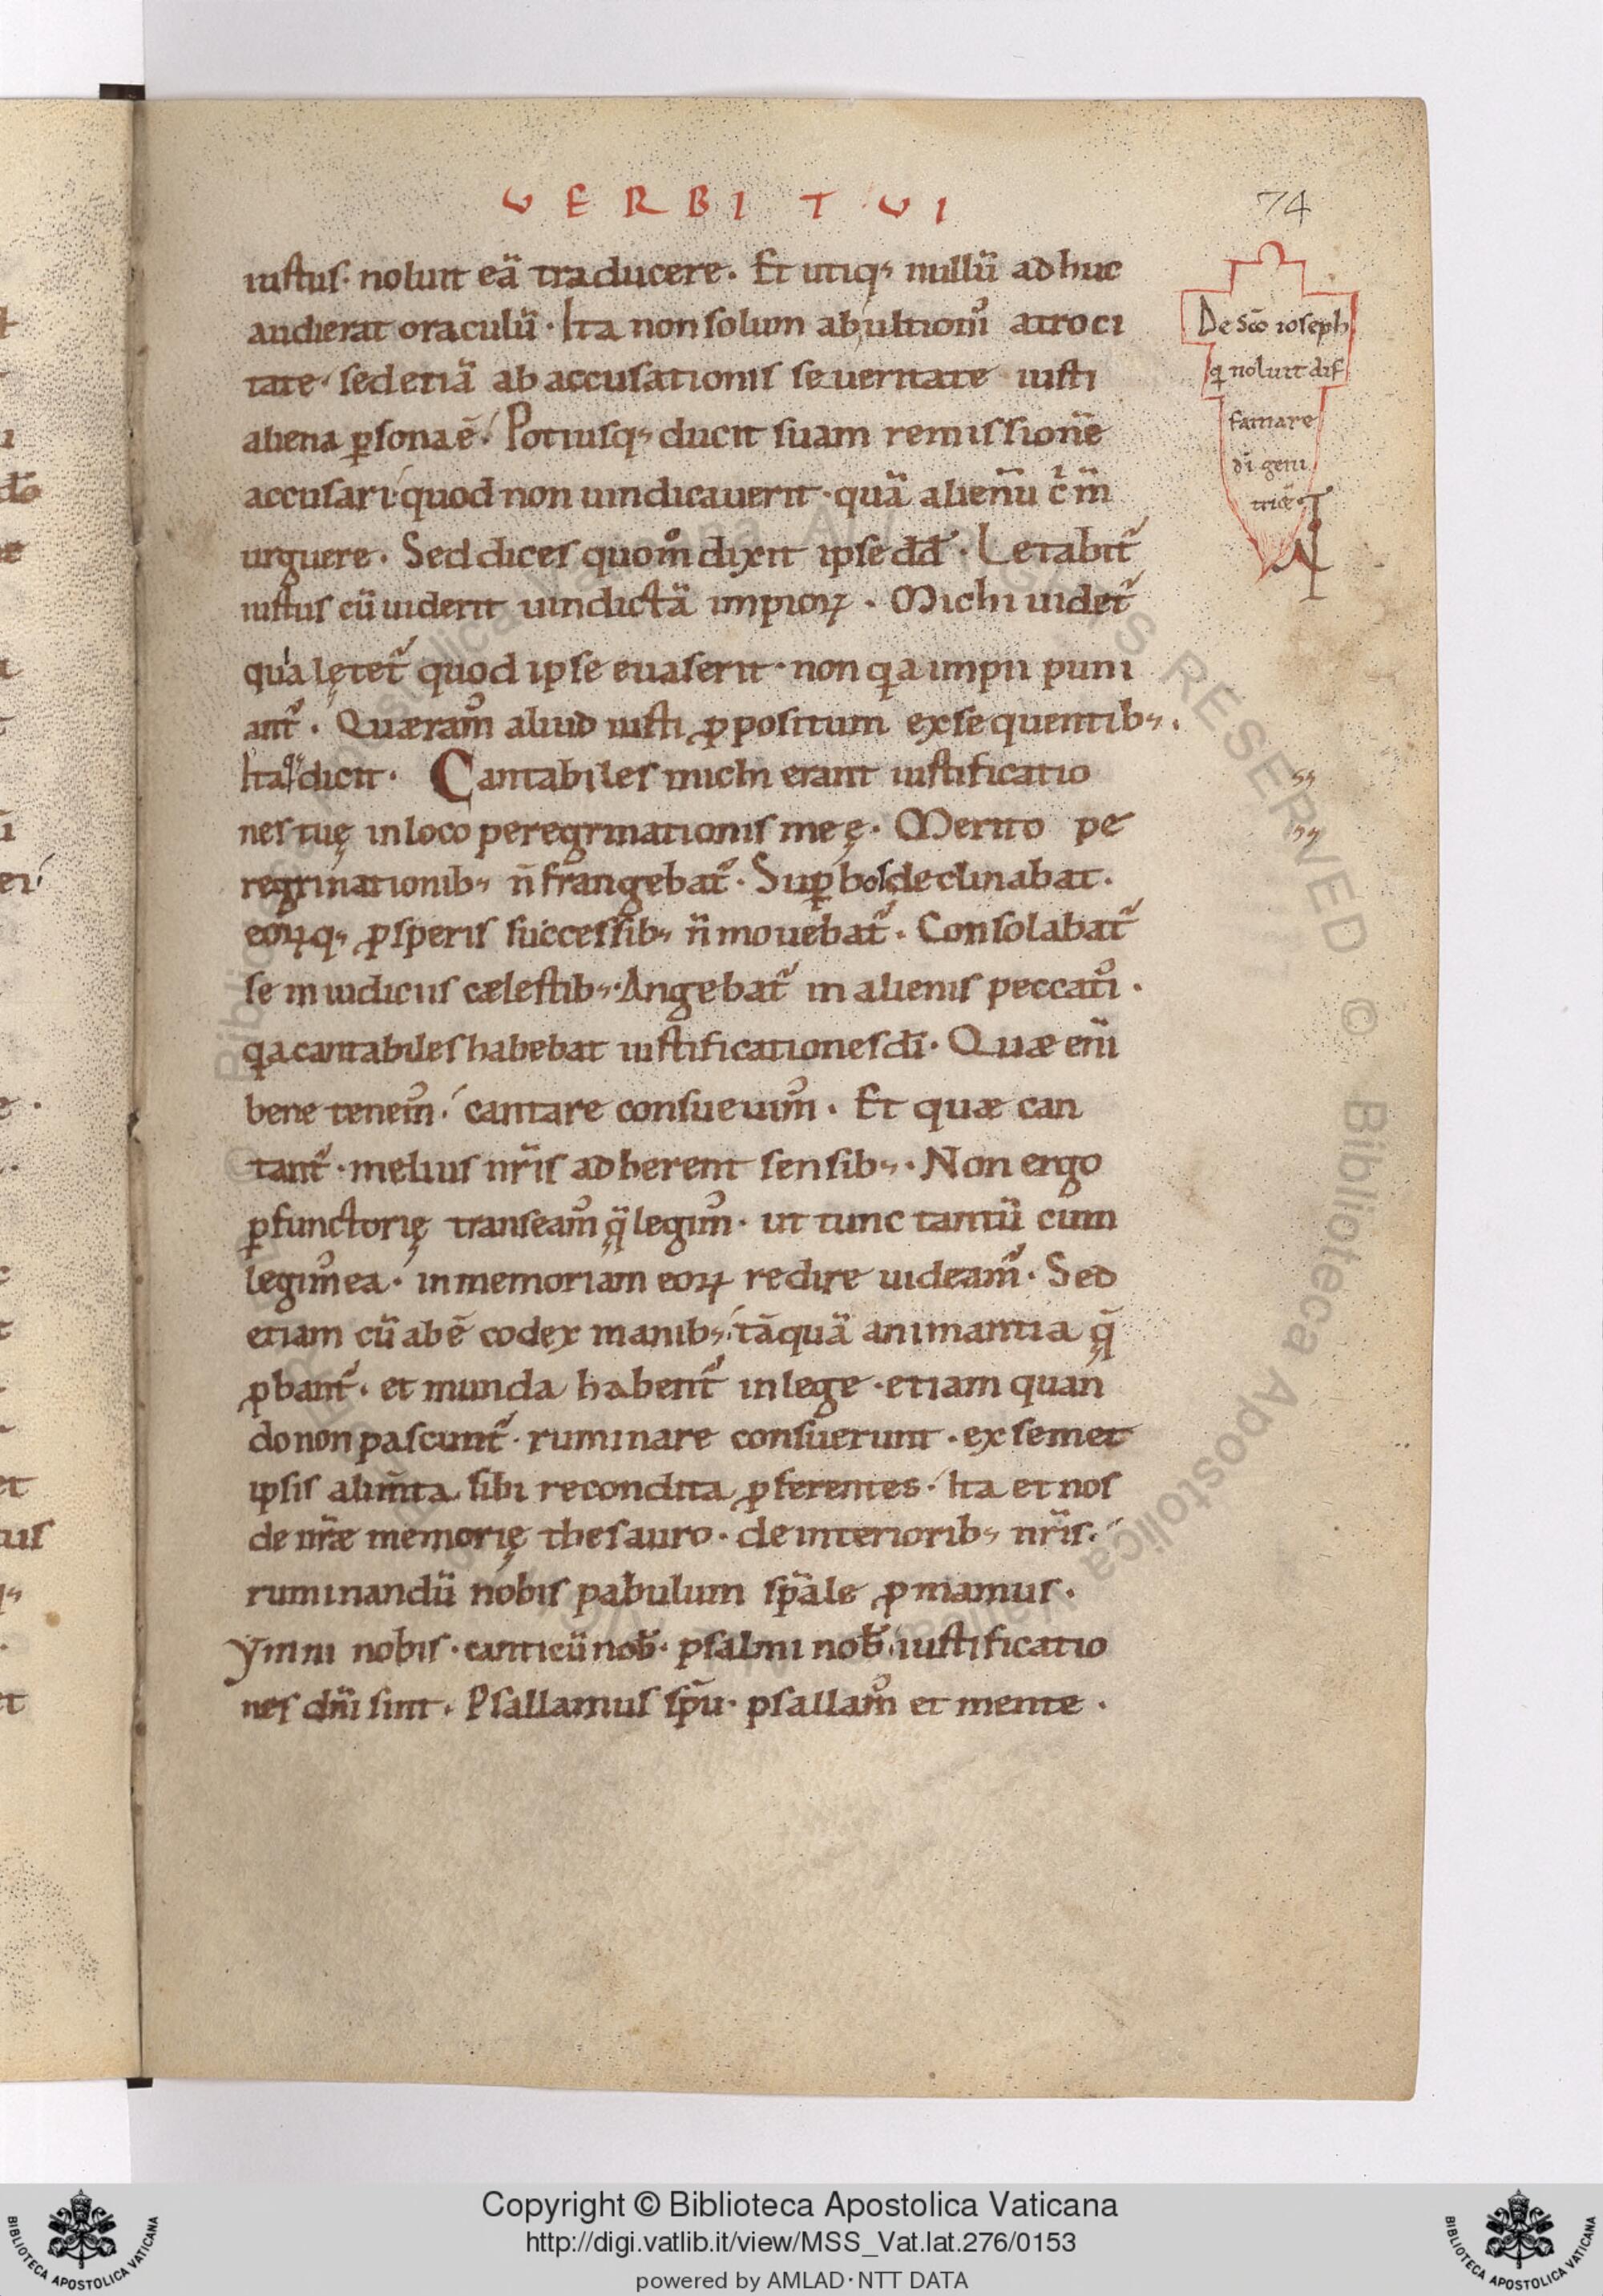 VERBI TUI
74
iustus· noluit eā traducere. Et utiq; nullū adhuc
audierat oraculū· Ita non solum ab ultioniˢ atroci
tate· sed etiā ab accusationis seueritate iusti
aliena ꝑsona ē. Potiusq; ducit suam remissionē
accusari quod non uindicauerit· quā alienū c̄m̄
urguere. Sed dices quom̊ dixit ipse dd̄. Letabit᷑
iustus cū uiderit uindictā impioꝝ. Michi uidet᷑
quia lętet᷑ quod ipse euaserit· non q̇a impii puni
ant᷑. Quæramꝰ aliud iusti ꝓpositum exsequentib;.
Ita dicit. Cantabiles michi erant iustificatio
nes tuę in loco peregrinationis meę. Merito pe
regrinationib; n̄ frangebat᷑. Suꝑbos declinabat.
eoꝝq; ꝓsperis successib; n̄ mouebat᷑. Consolabat᷑
se in iudiciis cælestib;· Angebat᷑ in alienis peccatiˢ.
q̇a cantabiles habebat iustificationes dī. Quæ enī
bene tenemꝰ. cantare consueuimꝰ. Et quæ can
tant᷑· melius nr̄is adherent sensib;. Non ergo
ꝑfunctorię transeamꝰ q̄ legimꝰ. ut tunc tantū cum
legimꝰ ea· in memoriam eoꝝ redire uideamꝰ. Sed
etiam cū abē codex manib;. tāquā animantia q̄
ꝓbant᷑. et munda habent᷑ in lege· etiam quan
do non pascunt᷑· ruminare consuerunt· ex semet
ipsis alim̄ta sibi recondita ꝓferentes· ita et nos
de nr̄æ memorię thesauro· de interiorib; nr̄is.
ruminandū nobis pabulum sp̄ale ꝓmamus.
ymni nobis· canticū nob̄. psalmi nob̄. iustificatio
nes dn̄i sint. Psallamus sp̄u· psallamꝰ et mente.
De sc̄o ioseph
q̇ noluit dif
famare
dī geni
tricē
Copyright © Biblioteca Apostolica Vaticana
http://digi.vatlib.it/view/MSS_Vat.lat.276/0153
powered by AMLAD·NTT DATA
BIBLIOTECA APOSTOLICA VATICANA
BIBLIOTECA APOSTOLICA VATICANA